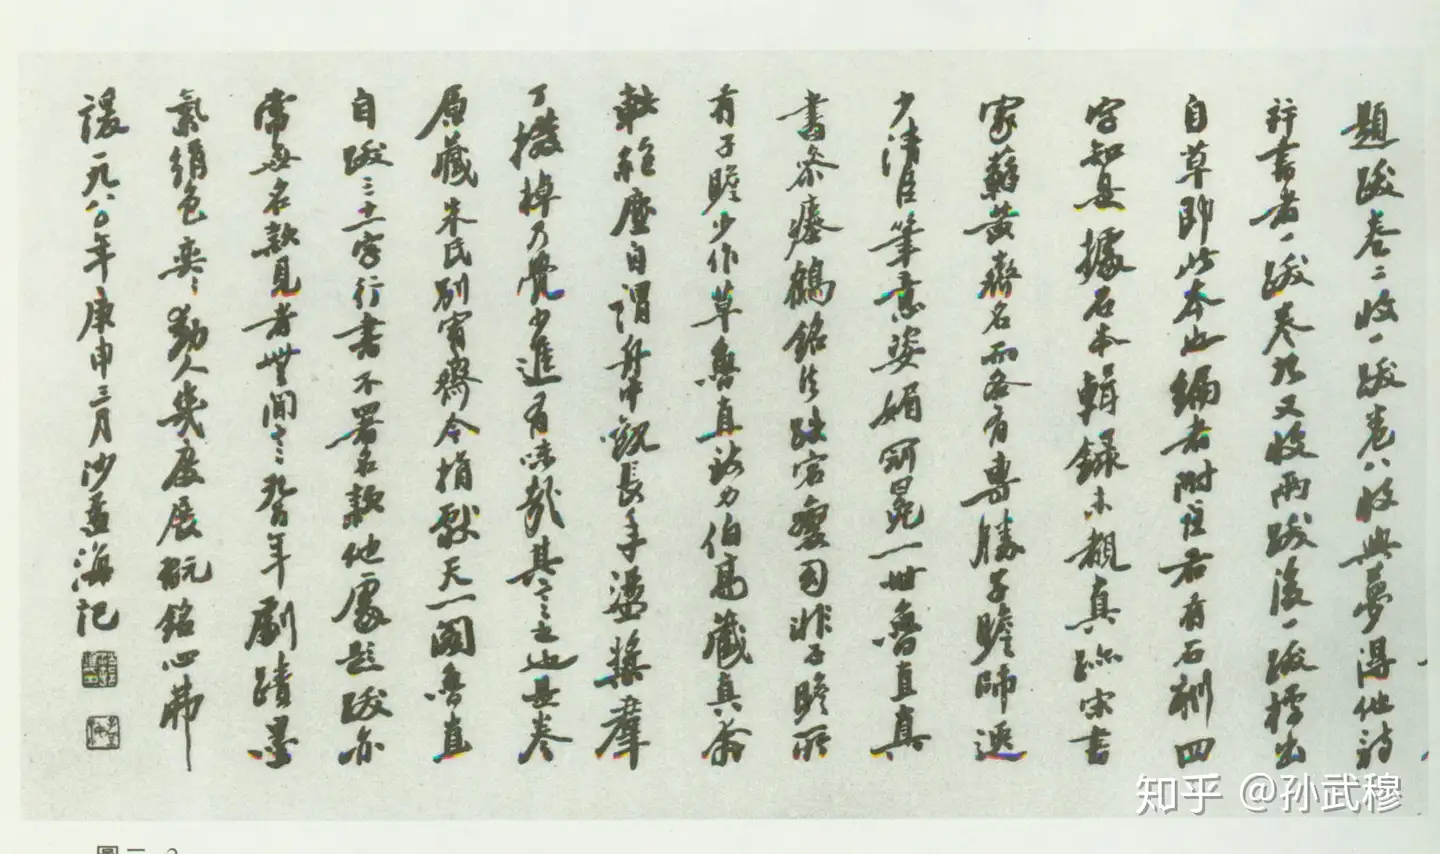 題跋卷二收一跋卷八收與夢得他詩
行書者一跋卷九又收兩跋後一跋標出
自草即此本也編者附注右有石刻四
字知是據石本輯錄未覩真跡宋書
家蘇黃齊名而各有專勝子瞻師退
少清臣筆意姿媚冠冕一世魯直真
書參瘞鶴銘法跌宕變司非子瞻所
有子瞻少作草魯直誇力伯高藏真俞
執種塵自謂舟中觀長年盪槳羣
丁撥棹乃覺少進有味哉其言之也是卷
原藏朱氏別宥齋今捐獻天一閣魯直
自跋三十二字行書不署名款他處題跋亦
常無名款見者無間言九百年劇蹟墨
氣絹色奕奕動人幾度展翫銘心弗
諼一九八〇年庚申三月沙孟海記
知乎 @孫武穆
圖二 2